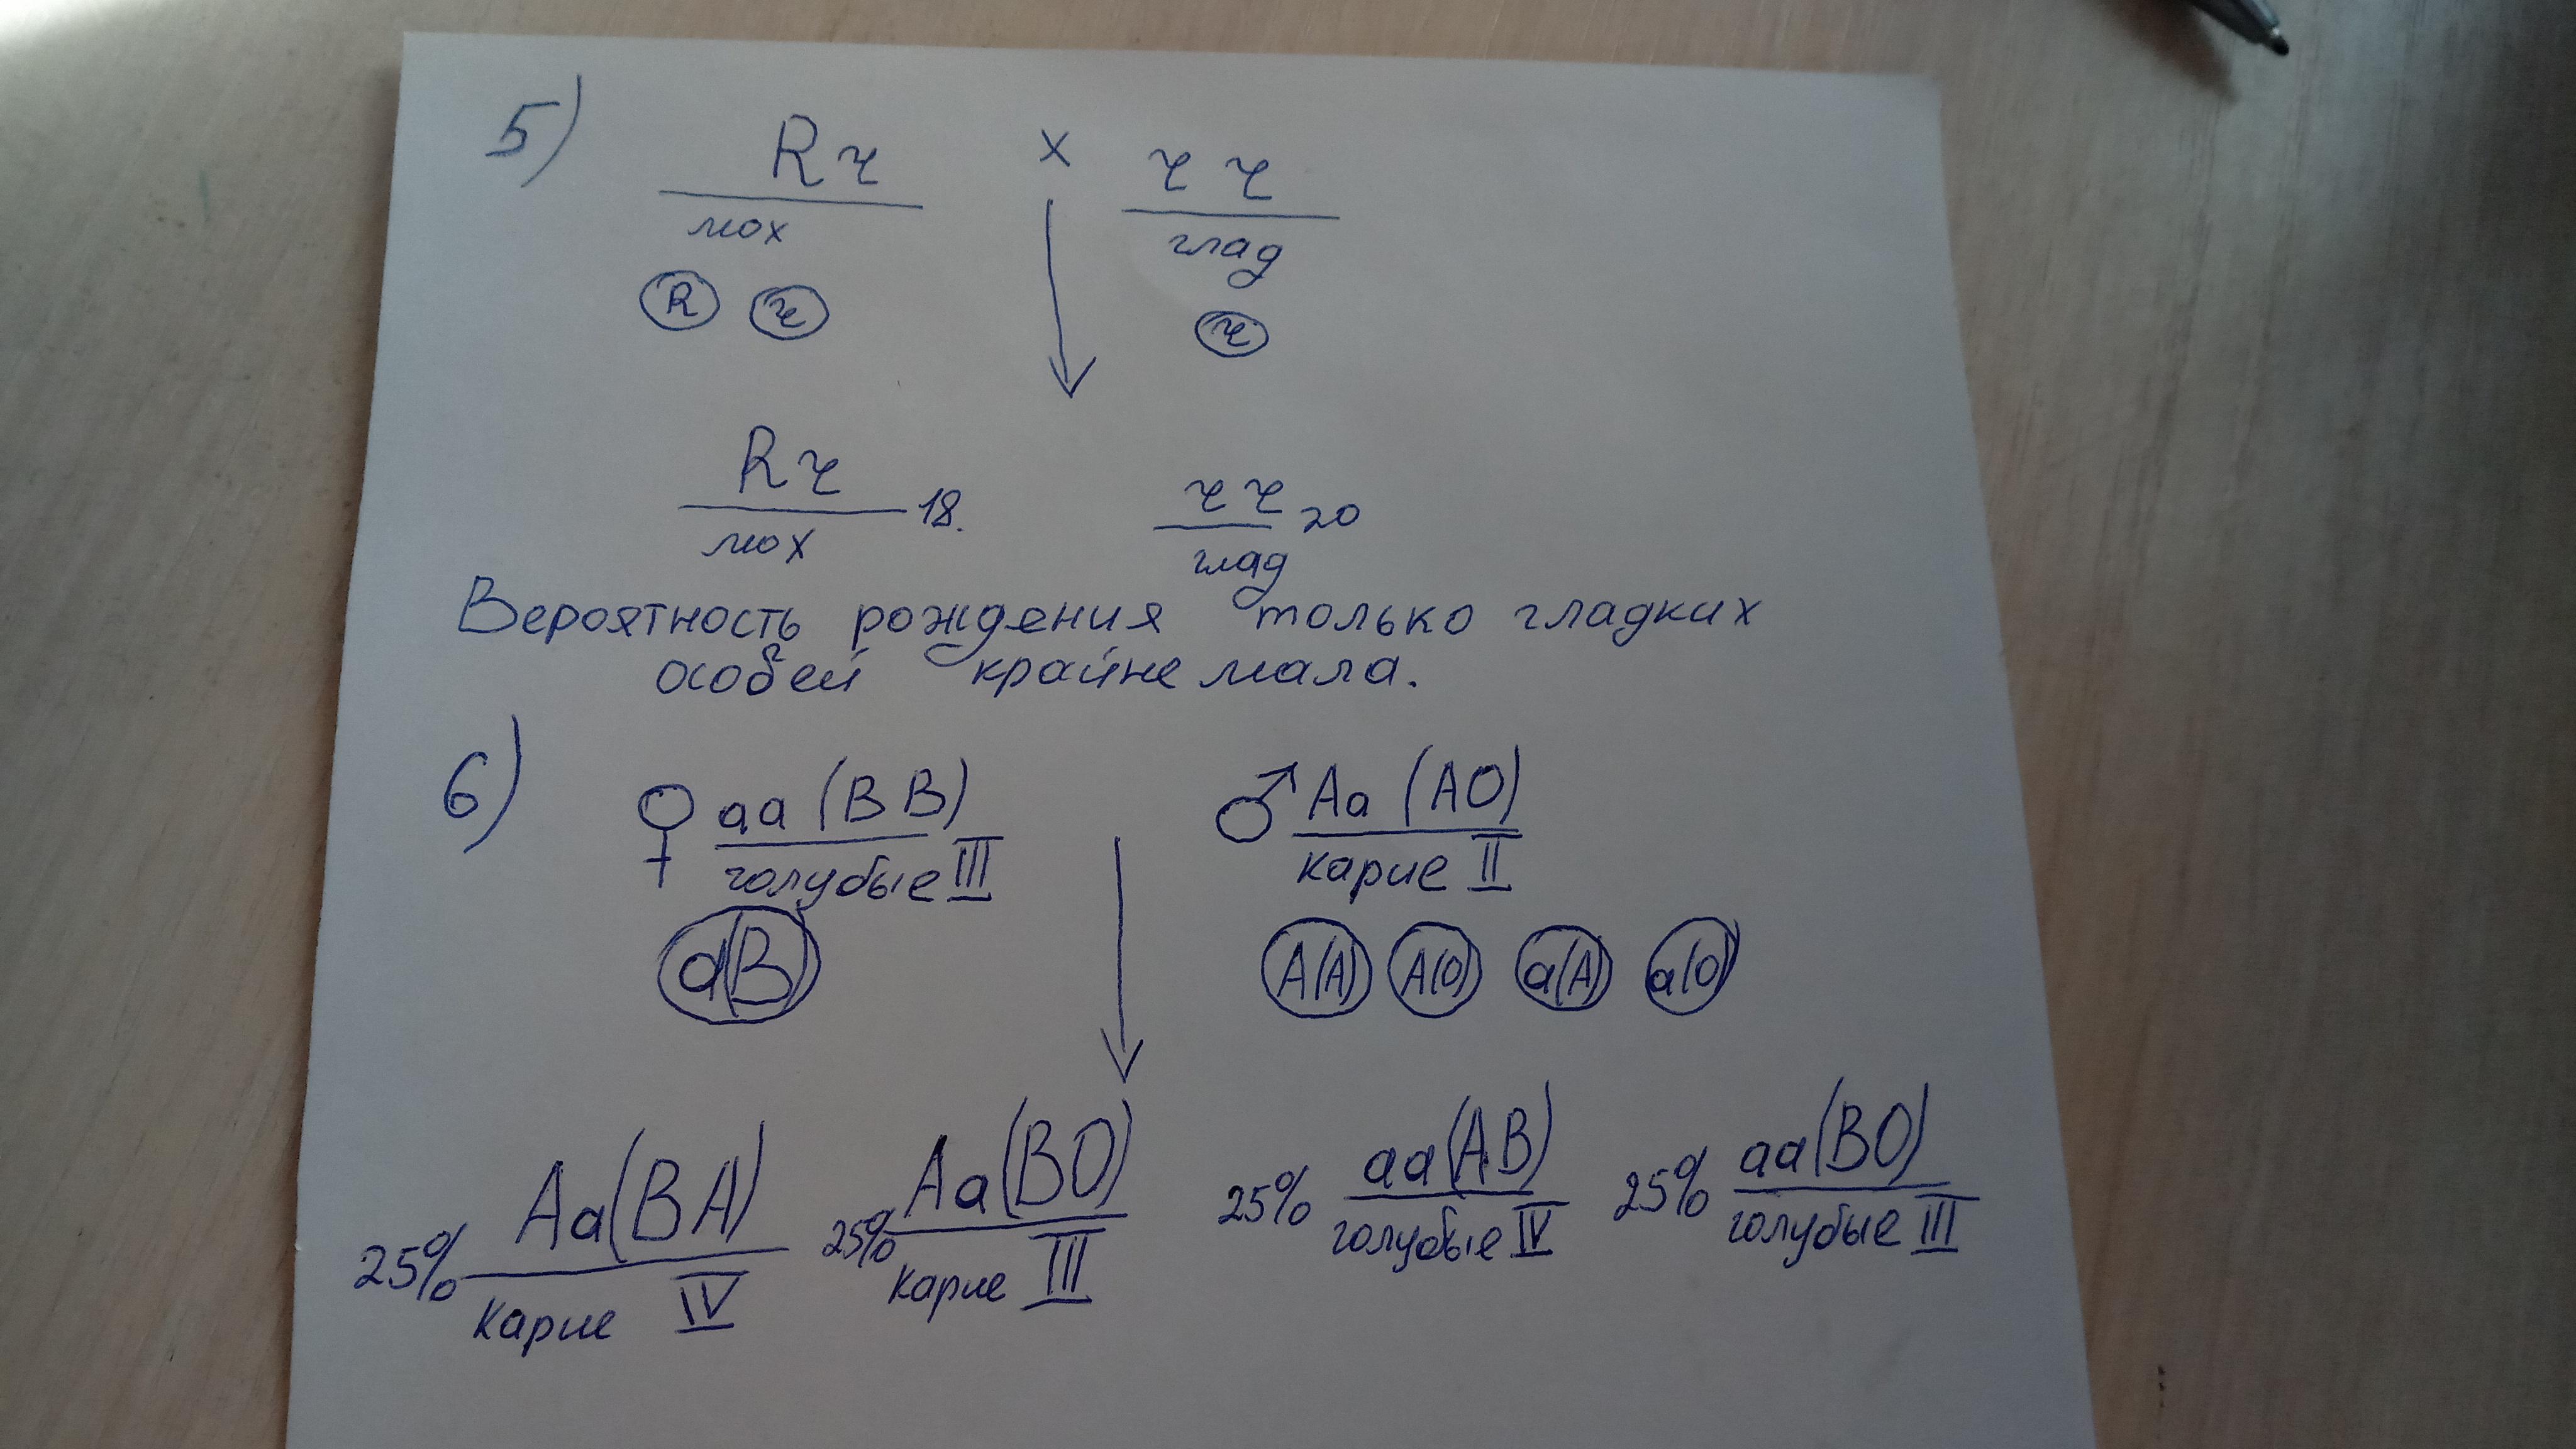 5) Rr x rr
мох глад
R r r
Rr rr
мох 18. глад 20
Вероятность рождения только гладких
особей крайне мала.
6) ♀ aa (BB) ♂ Aa (AO)
голубые III карие II
a(B) A(A) A(O) a(A) a(O)
Aa(BA) Aa(BO) aa(AB) aa(BO)
25% 25% 25% 25%
карие IV карие III голубые IV голубые III